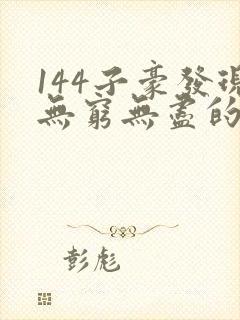 144子豪發現
無窮無盡的
彭彪